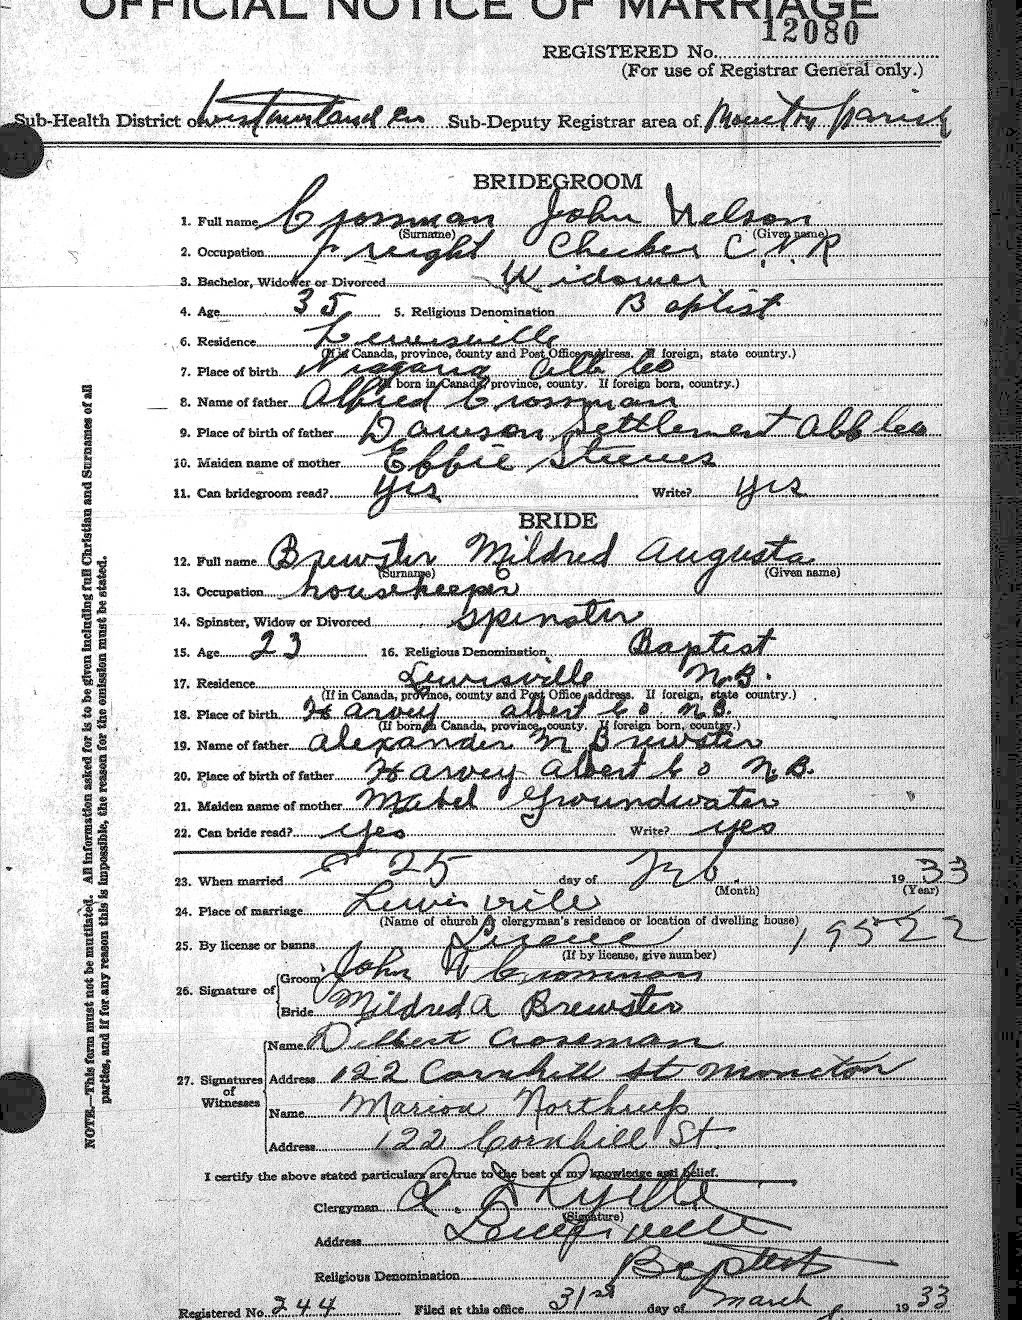 OFFICIAL NOTICE OF MARRIAGE
12080
REGISTERED No.
(For use of Registrar General only.)
Sub-Health District of Westmorland Co Sub-Deputy Registrar area of Moncton Parish
BRIDEGROOM
1. Full name Crossman John Nelson
(Surname) (Given name)
2. Occupation Freight Checker C.N.R
3. Bachelor, Widower or Divorced Widower
4. Age 35 5. Religious Denomination Baptist
6. Residence Lewisville
(If in Canada, province, county and Post Office address. If foreign, state country.)
7. Place of birth Niagara Alb Co
(If born in Canada, province, county. If foreign born, country.)
8. Name of father Alfred Crossman
9. Place of birth of father Dawson Settlement Alb Co
10. Maiden name of mother Effie Steeves
11. Can bridegroom read? yes Write? yes
BRIDE
12. Full name Brewster Mildred Augusta
(Surname) (Given name)
13. Occupation housekeeper
14. Spinster, Widow or Divorced spinster
15. Age 23 16. Religious Denomination Baptist
17. Residence Lewisville N.B.
(If in Canada, province, county and Post Office address. If foreign, state country.)
18. Place of birth Harvey Albert Co N.B.
(If born in Canada, province, county. If foreign born, country.)
19. Name of father Alexander M Brewster
20. Place of birth of father Harvey Albert Co N.B.
21. Maiden name of mother Mabel Groundwater
22. Can bride read? yes Write? yes
23. When married 25 day of 1933
(Month) (Year)
24. Place of marriage Lewisville
(Name of church & clergyman's residence or location of dwelling house)
25. By license or banns License 19522
(If by license, give number)
26. Signature of
Groom John N Crossman
Bride Mildred A Brewster
27. Signatures of Witnesses
Name Delbert Crossman
Address 122 Cornhill St Moncton
Name Marion Northrup
Address 122 Cornhill St
I certify the above stated particulars are true to the best of my knowledge and belief.
Clergyman
(Signature)
Address Lewisville
Religious Denomination Baptist
Registered No. 244 Filed at this office 31st day of March 1933
NOTE.—This form must not be mutilated. All information asked for is to be given including full Christian and Surnames of all
parties, and if for any reason this is impossible, the reason for the omission must be stated.